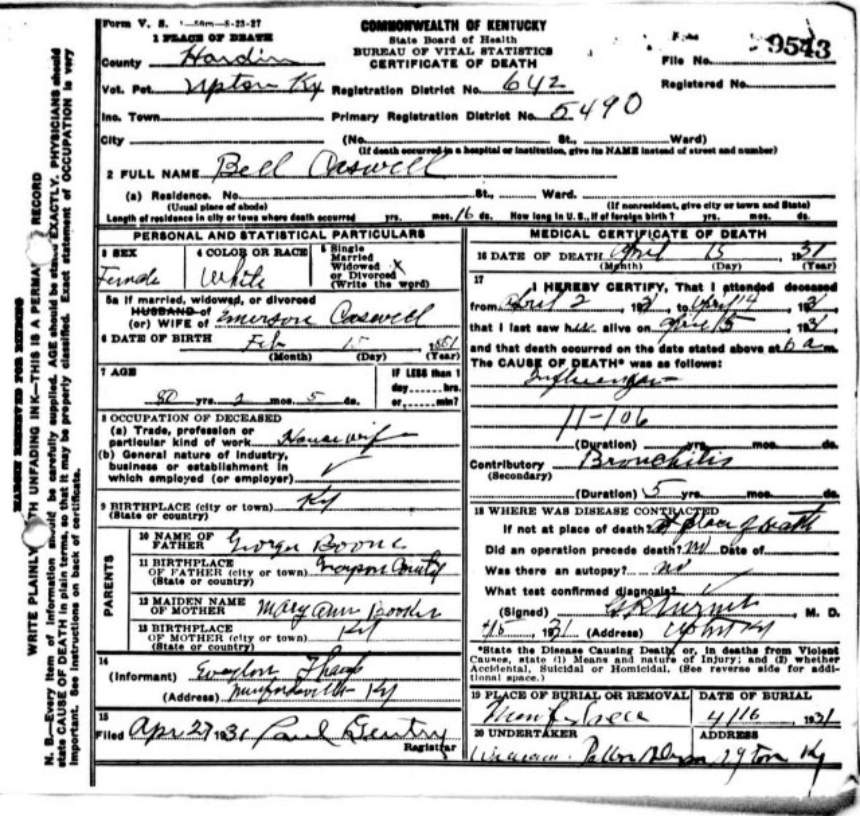 Form V. S. 1-50m-5-23-27
COMMONWEALTH OF KENTUCKY
State Board of Health
BUREAU OF VITAL STATISTICS
CERTIFICATE OF DEATH
File No. 9543
Registered No.
1 PLACE OF DEATH
County Hardin
Vot. Pct. Upton Ky Registration District No. 642
Inc. Town Primary Registration District No. 5490
City (No. St., Ward)
(If death occurred in a hospital or institution, give its NAME instead of street and number)
2 FULL NAME Bell Caswell
(a) Residence. No. St., Ward.
(Usual place of abode) (If nonresident, give city or town and State)
Length of residence in city or town where death occurred yrs. mos. 16 ds. How long in U. S., if of foreign birth? yrs. mos. ds.
PERSONAL AND STATISTICAL PARTICULARS
3 SEX
Female
4 COLOR OR RACE
White
5 Single
Married
Widowed X
or Divorced
(Write the word)
5a If married, widowed, or divorced
HUSBAND of
(or) WIFE of Emerson Caswell
6 DATE OF BIRTH Feb 15 1851
(Month) (Day) (Year)
7 AGE
80 yrs. 2 mos. 5 ds.
IF LESS than 1
day hrs.
or min?
8 OCCUPATION OF DECEASED
(a) Trade, profession or
particular kind of work Housewife
(b) General nature of industry,
business or establishment in
which employed (or employer) ✓
9 BIRTHPLACE (city or town) Ky
(State or country)
PARENTS
10 NAME OF
FATHER George Boone
11 BIRTHPLACE
OF FATHER (city or town) Grayson County
(State or country)
12 MAIDEN NAME
OF MOTHER Mary Ann Booker
13 BIRTHPLACE
OF MOTHER (city or town) Ky
(State or country)
14
(Informant)
(Address) Munfordsville Ky
15
Filed Apr 27 1931 Paul Gentry
Registrar
MEDICAL CERTIFICATE OF DEATH
16 DATE OF DEATH April 15, 1931
(Month) (Day) (Year)
17
I HEREBY CERTIFY, That I attended deceased
from April 2, 1931, to April 14, 1931
that I last saw her alive on April 15, 1931
and that death occurred on the date stated above at 6 a m.
The CAUSE OF DEATH* was as follows:
Influenza
11-106
(Duration) yrs. mos. ds.
Contributory Bronchitis
(Secondary)
(Duration) 5 yrs. mos. ds.
18 WHERE WAS DISEASE CONTRACTED
If not at place of death? at place of death
Did an operation precede death? no Date of
Was there an autopsy? no
What test confirmed diagnosis? ✓
(Signed) M. D.
4/15 1931 (Address) Upton Ky
*State the Disease Causing Death, or, in deaths from Violent
Causes, state (1) Means and nature of Injury; and (2) whether
Accidental, Suicidal or Homicidal. (See reverse side for addi-
tional space.)
19 PLACE OF BURIAL OR REMOVAL
DATE OF BURIAL
4/16 1931
20 UNDERTAKER
ADDRESS
Upton Ky
MARGIN RESERVED FOR BINDING
WRITE PLAINLY WITH UNFADING INK—THIS IS A PERMA RECORD
N. B.—Every item of information should be carefully supplied. AGE should be stated EXACTLY. PHYSICIANS should
state CAUSE OF DEATH in plain terms, so that it may be properly classified. Exact statement of OCCUPATION is very
important. See instructions on back of certificate.